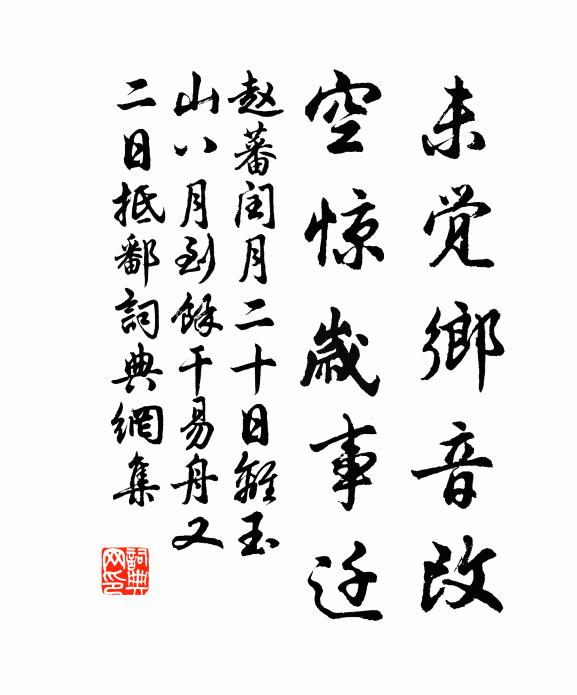 未觉鄉音改
空惊歲事迁
赵蕃閏月二十日離玉
山八月到餘干易舟又
二日抵鄱詞典網集
詞典
网印